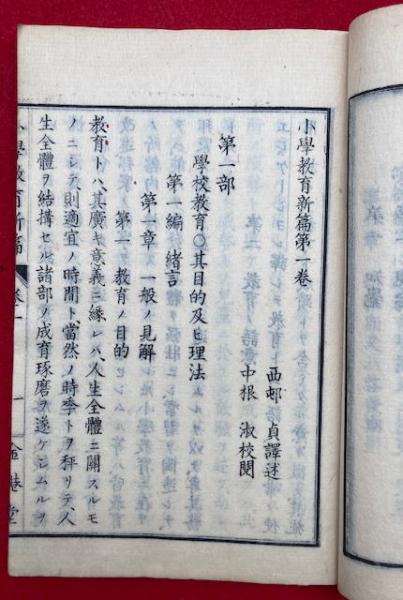 小學教育新篇第一卷
西邨 貞譯述
中根 淑校閲
第一部
學校敎育〇其目的及ヒ理法
第一編 緒言
第一章 一般ノ見解
第一 敎育ノ目的
敎育トハ、其廣キ意義ニ緣レハ、人生全體ニ關スルモ
ノニシテ、則適宜ノ時間ト、當然ノ時季トヲ秤リテ、人
生全體ヲ結搆セル諸部ノ成育琢磨ヲ遂ケシムルヲ
小學敎育新篇 卷一 一 金港堂